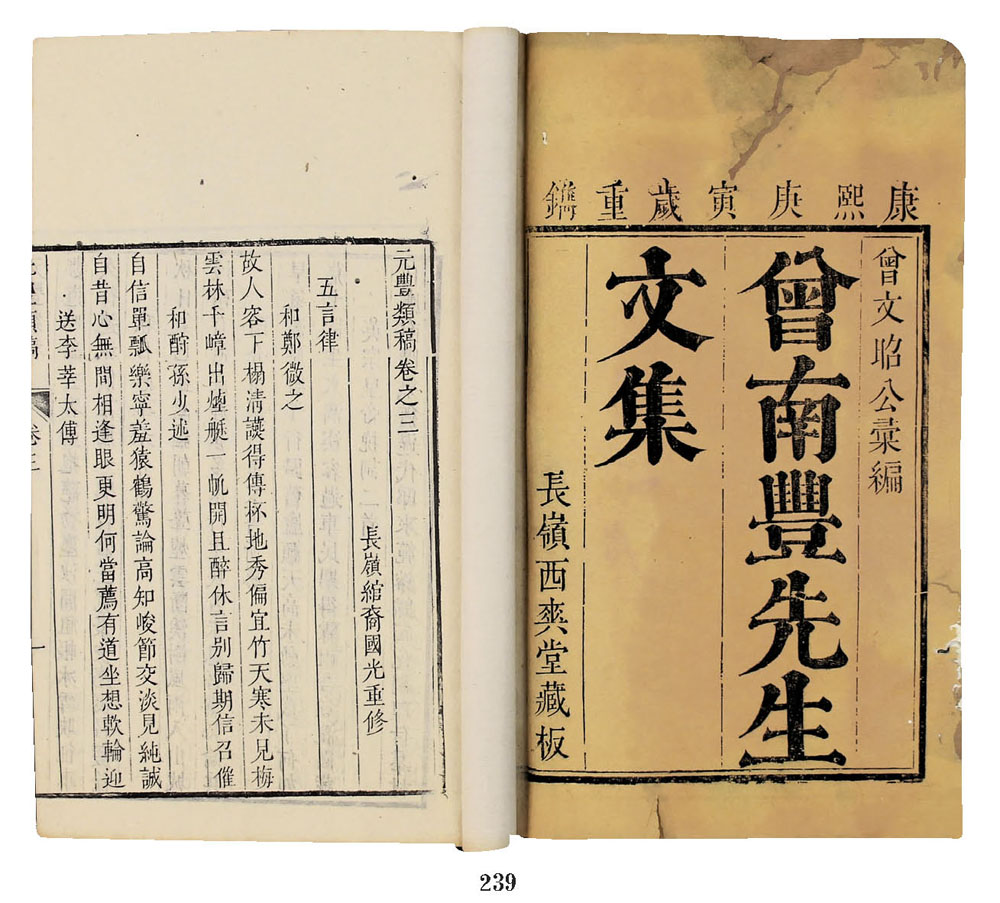 康熙庚寅歲重鐫
曾文昭公彙編
曾南豐先生
文集
長嶺西爽堂藏板
元豐類稿卷之三
長嶺綰裔國光重修
五言律
和鄭微之
故人容下榻清議得傳杯地秀偏宜竹天寒未見梅
雲林千嶂出煙艇一帆開且醉休言別歸期信召催
和酬孫少述
自信單瓢樂寧羞猿鶴驚論高知峻節交淡見純誠
自昔心無間相逢眼更明何當薦有道坐想軟輪迎
送李莘太傅
類稿 卷三 一
239